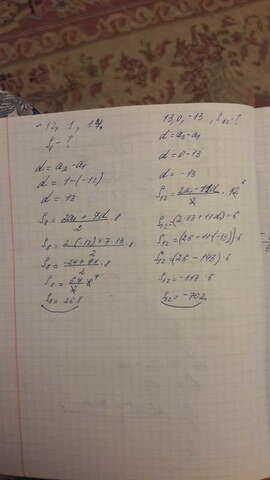 -12, 1, 14,
S₈ - ?
d = a₂ - a₁
d = 1 - (-12)
d = 13
S₈ = 2a₁ + 7d / 2 · 8
S₈ = 2·(-12) + 7·13 / 2 · 8
S₈ = -24 + 91 / 2 · 8
S₈ = 268
13, 0, -13, S₁₂ - ?
d = a₂ - a₁
d = 0 - 13
d = -13
S₁₂ = (2·13 + 11d) · 6
S₁₂ = (26 + 11·(-13)) · 6
S₁₂ = (26 - 143) · 6
S₁₂ = -117 · 6
S₁₂ = -702